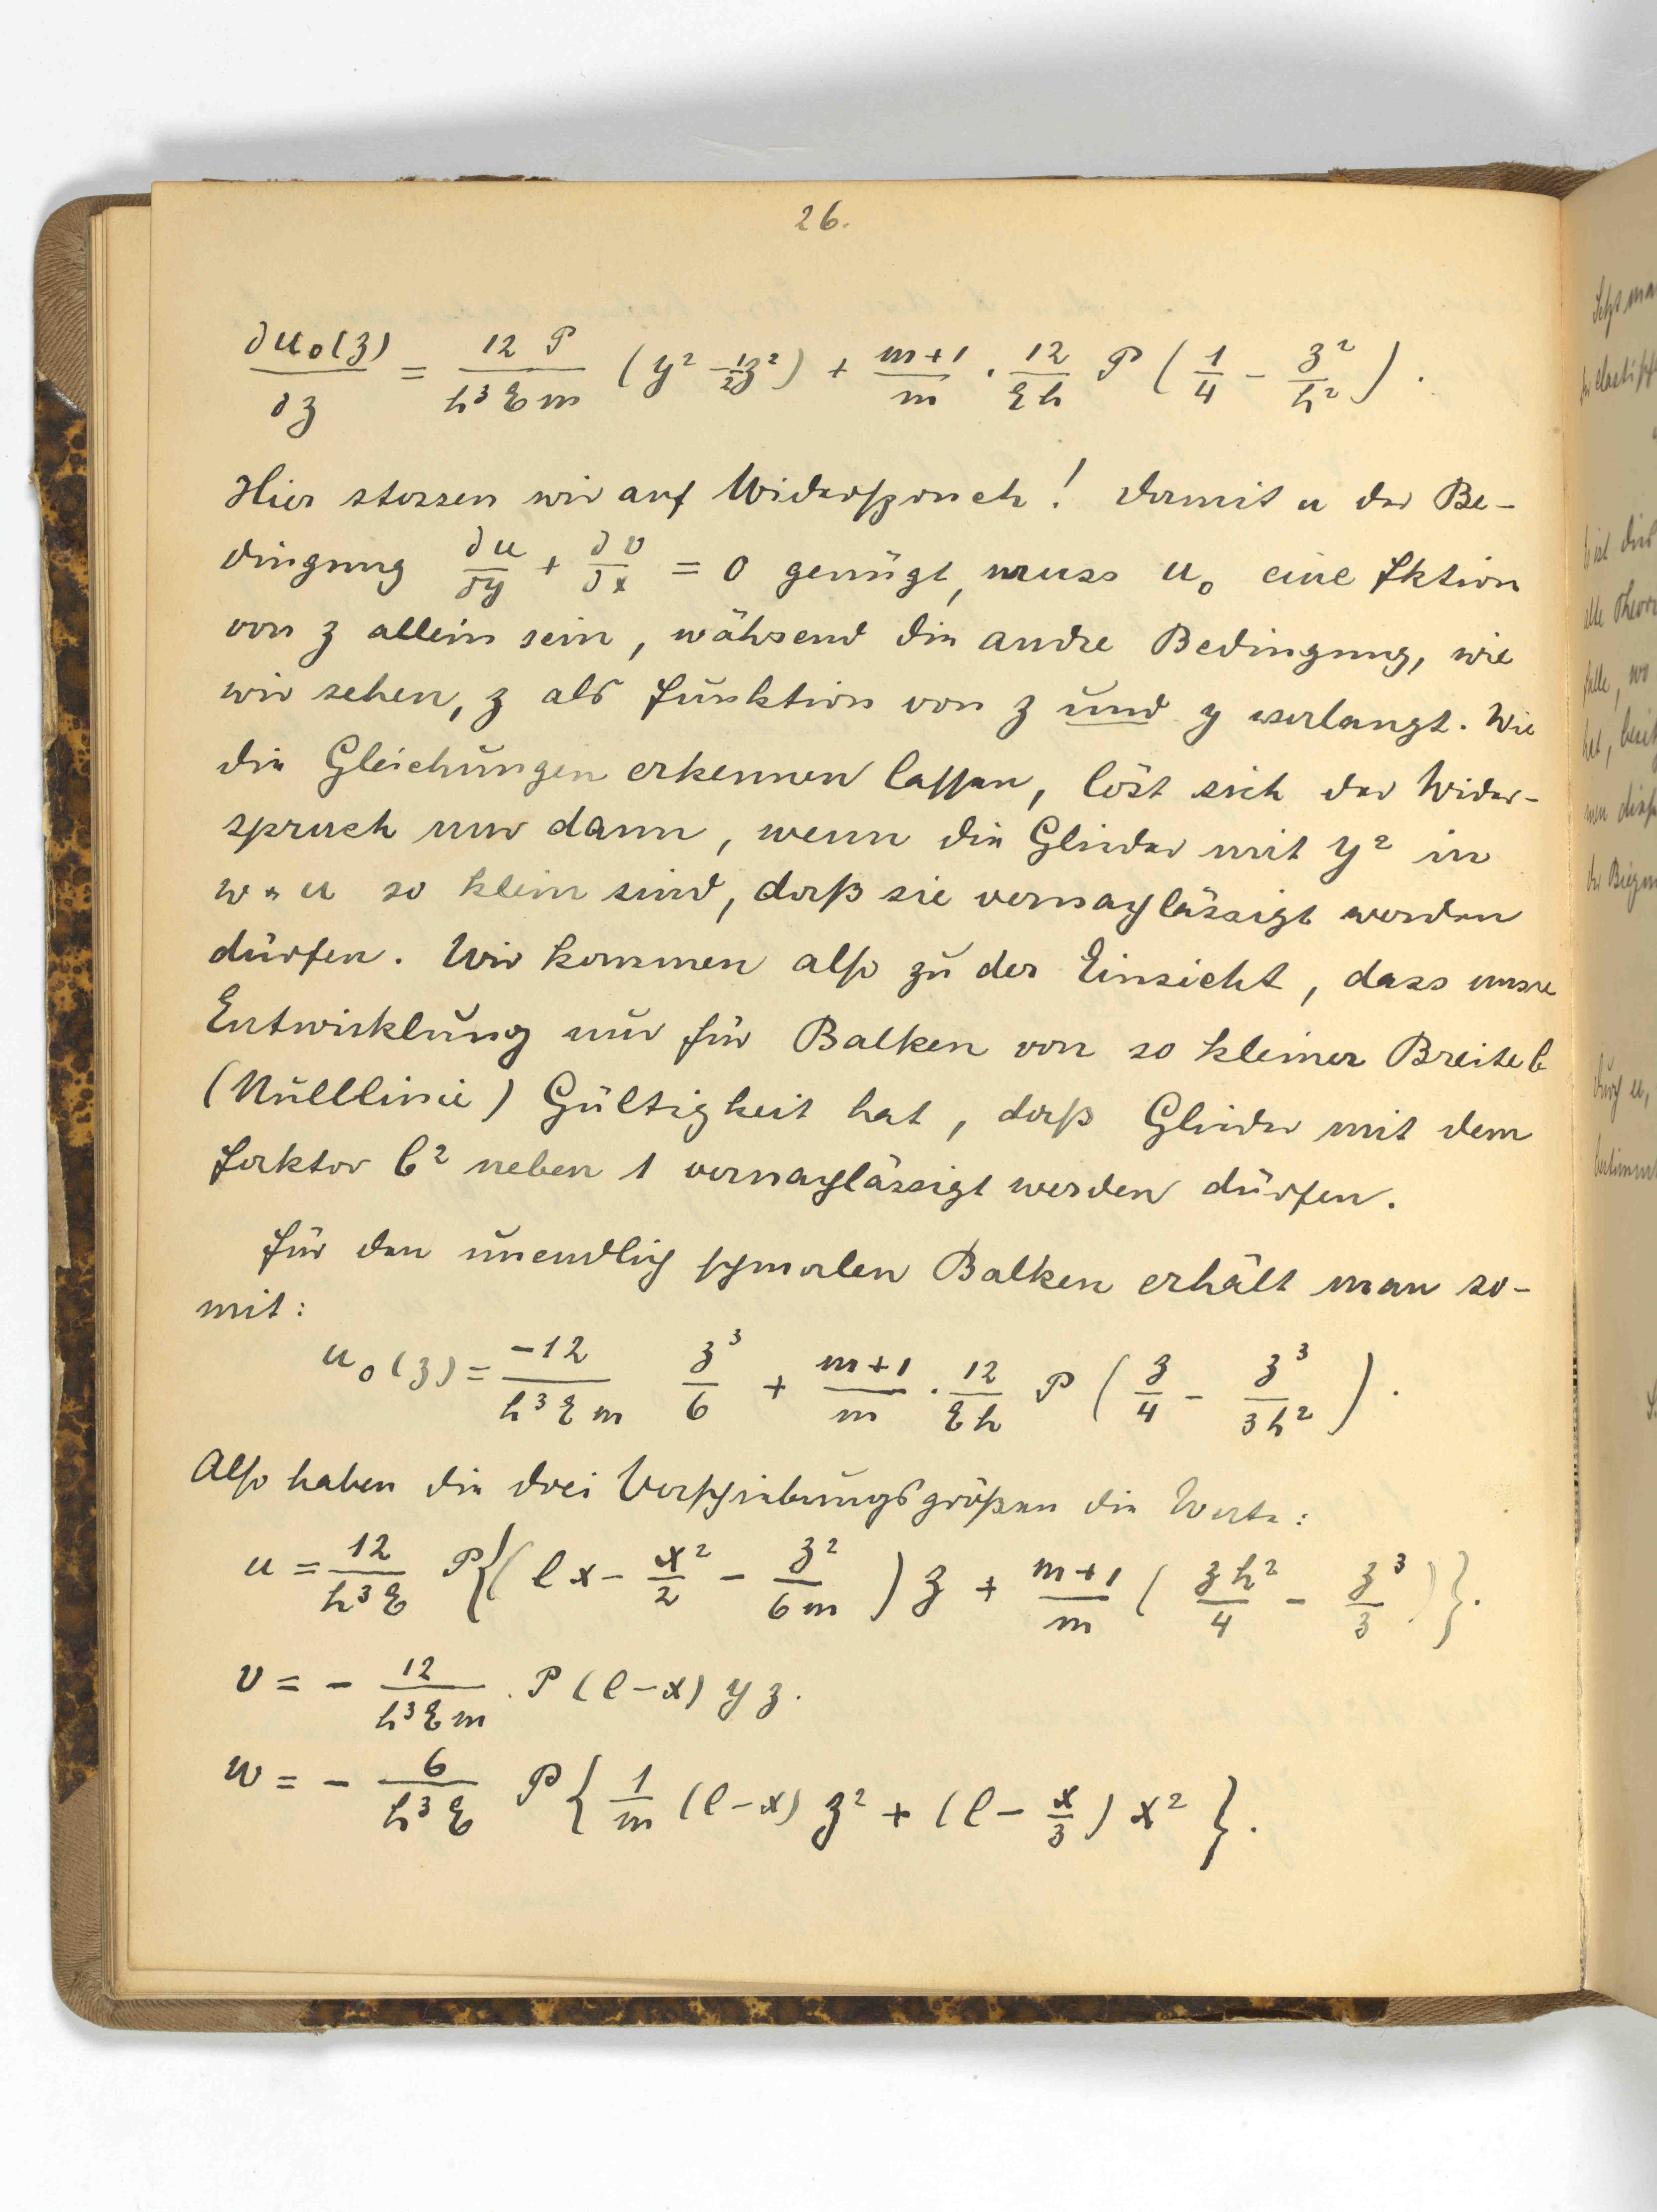 26.
∂u₀(z)/∂z = 12 P/(h³ E m) (y² - ½z²) + (m+1)/m · 12/(E h) P (1/4 - z²/h²).
Hier stossen wir auf Widerspruch! Damit u der Be-
dingung ∂u/∂y + ∂v/∂x = 0 genügt, muss u₀ eine Fktion
von z allein sein, während die andre Bedingung, wie
wir sehen, z als Funktion von z und y verlangt. Wie
die Gleichungen erkennen lassen, löst sich der Wider-
spruch nur dann, wenn die Glieder mit y² in
w u so klein sind, daß sie vernachlässigt werden
dürfen. Wir kommen also zu der Einsicht, dass unsre
Entwicklung nur für Balken von so kleiner Breite b
(Nulllinie) Gültigkeit hat, daß Glieder mit dem
Faktor b² neben 1 vernachlässigt werden dürfen.
Für den unendlich schmalen Balken erhält man so-
mit:
u₀(z) = -12/(h³ E m) z³/6 + (m+1)/m · 12/(E h) P (z/4 - z³/(3h²)).
Also haben die drei Verschiebungsgrößen die Werte:
u = 12/(h³ E) P{(lx - x²/2 - z²/(6m)) z + (m+1)/m (z h²/4 - z³/3)}.
v = - 12/(h³ E m) · P (l-x) y z.
w = - 6/(h³ E) P{1/m (l-x) z² + (l - x/3) x²}.